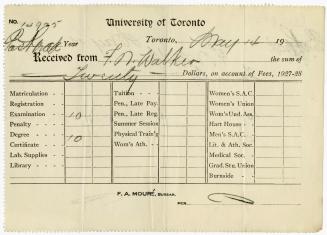 No. 14995 University of Toronto
Year Toronto, May 14 19
Received from F. N. Walker the sum of
Twenty Dollars, on account of Fees, 1927-28
Matriculation Tuition Women's S.A.C.
Registration Pen., Late Pay. Women's Union
Examination 10 Pen., Late Reg. Wom's Und. Ass.
Penalty Summer Session Hart House
Degree 10 Physical Train'g Men's S.A.C.
Certificate Wom's Ath. Lit. & Ath. Soc.
Lab. Supplies Medical Soc.
Library Grad. Stu. Union
Burnside
F. A. MOURÉ, BURSAR.
PER